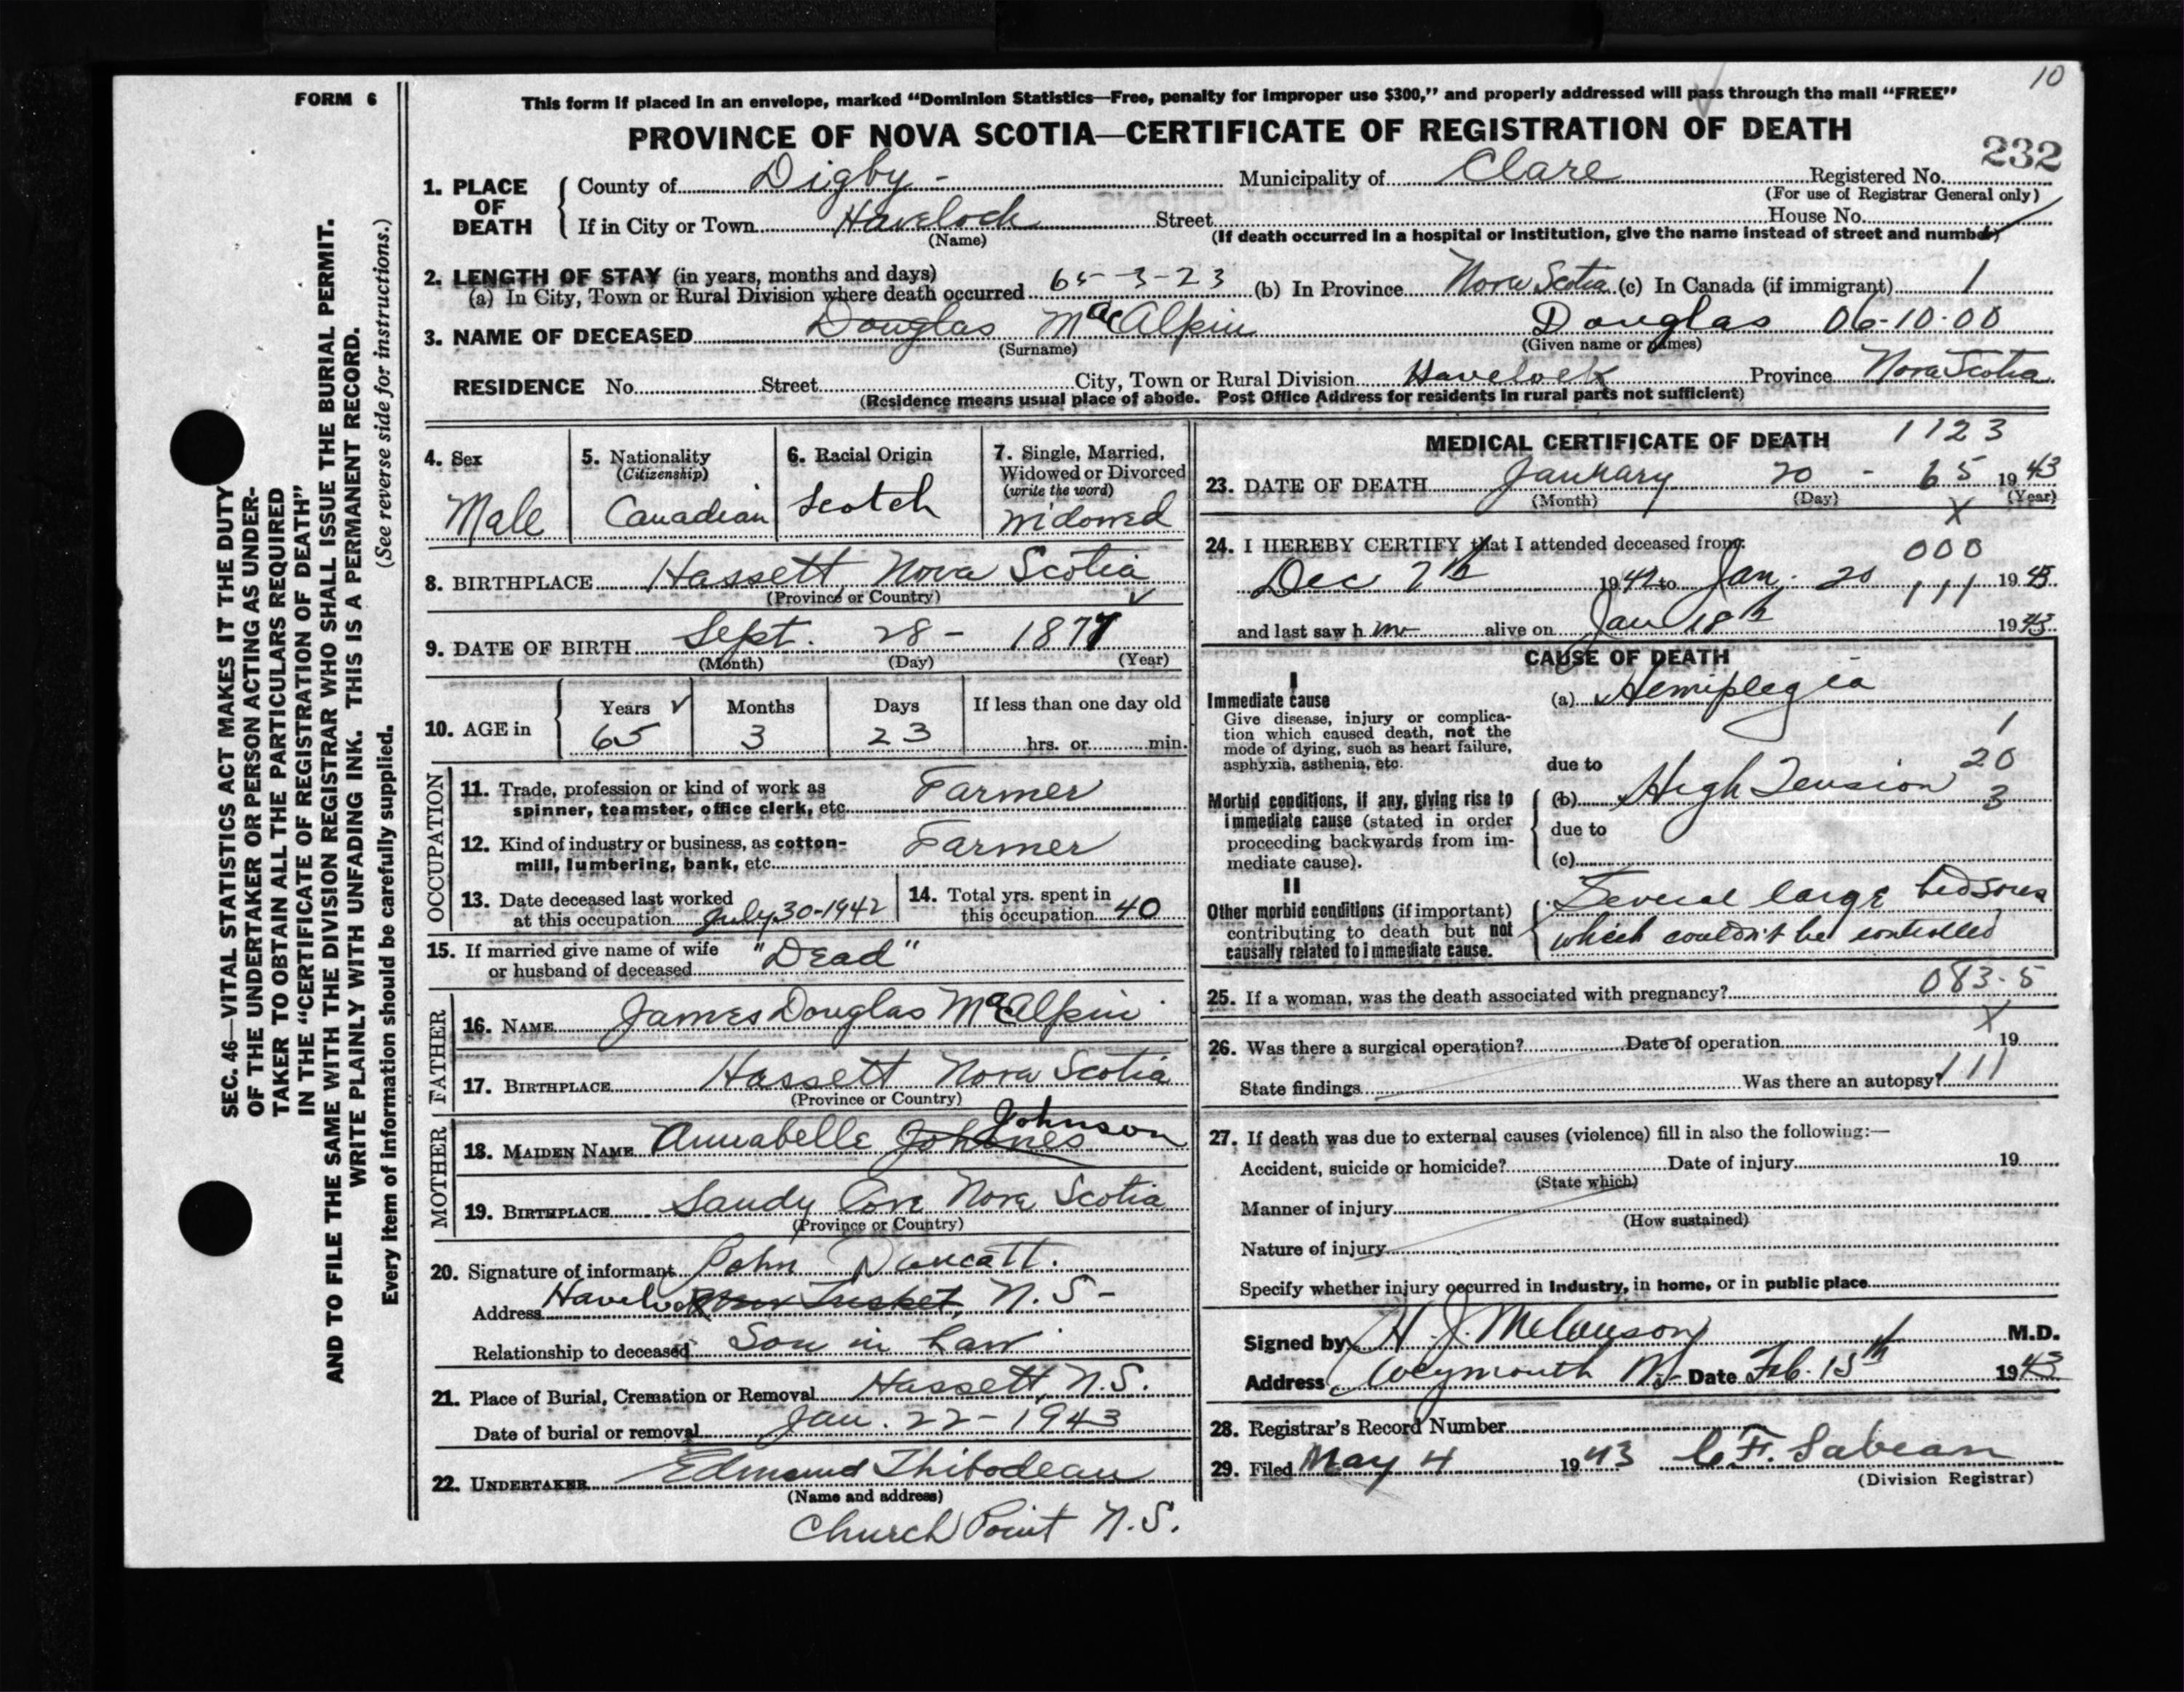 10
FORM 6
This form if placed in an envelope, marked “Dominion Statistics—Free, penalty for improper use $300,” and properly addressed will pass through the mail “FREE”
PROVINCE OF NOVA SCOTIA—CERTIFICATE OF REGISTRATION OF DEATH
232
1. PLACE OF DEATH
County of Digby - Municipality of Clare Registered No.
(For use of Registrar General only)
If in City or Town Havelock Street House No.
(Name) (If death occurred in a hospital or institution, give the name instead of street and number)
2. LENGTH OF STAY (in years, months and days)
(a) In City, Town or Rural Division where death occurred 65-3-23 (b) In Province Nova Scotia (c) In Canada (if immigrant) 1
3. NAME OF DECEASED Douglas MacAlpin Douglas 06-10-00
(Surname) (Given name or names)
RESIDENCE No. Street City, Town or Rural Division Havelock Province Nova Scotia
(Residence means usual place of abode. Post Office Address for residents in rural parts not sufficient)
4. Sex
Male
5. Nationality
(Citizenship)
Canadian
6. Racial Origin
Scotch
7. Single, Married,
Widowed or Divorced
(write the word)
Widowed
8. BIRTHPLACE Hassett Nova Scotia
(Province or Country)
9. DATE OF BIRTH Sept. 28 - 1877
(Month) (Day) (Year)
10. AGE in
Years Months Days If less than one day old
65 3 23 hrs. or min.
OCCUPATION
11. Trade, profession or kind of work as
spinner, teamster, office clerk, etc. Farmer
12. Kind of industry or business, as cotton-
mill, lumbering, bank, etc. Farmer
13. Date deceased last worked
at this occupation July 30-1942
14. Total yrs. spent in
this occupation 40
15. If married give name of wife
or husband of deceased "Dead"
FATHER
16. NAME James Douglas MacAlpin
17. BIRTHPLACE Hassett Nova Scotia
(Province or Country)
MOTHER
Johnson
18. MAIDEN NAME Annabelle
19. BIRTHPLACE Sandy Cove Nova Scotia
(Province or Country)
20. Signature of informant John
Address Havelock New Tusket, N.S-
Relationship to deceased Son in Law
21. Place of Burial, Cremation or Removal Hassett, N.S.
Date of burial or removal Jan. 22-1943
22. UNDERTAKER Edmund Thibodeau
(Name and address)
Church Point N.S.
MEDICAL CERTIFICATE OF DEATH 1123
23. DATE OF DEATH January 20 - 65 1943
(Month) (Day) (Year)
X
24. I HEREBY CERTIFY that I attended deceased from:
000
Dec 7th 1942 to Jan. 20 111 1943
and last saw h im alive on Jan 18th 1943
CAUSE OF DEATH
I
Immediate cause
Give disease, injury or complica-
tion which caused death, not the
mode of dying, such as heart failure,
asphyxia, asthenia, etc.
(a) Hemiplegia
1
due to
20
Morbid conditions, if any, giving rise to
immediate cause (stated in order
proceeding backwards from im-
mediate cause).
(b) High Tension 3
due to
(c)
II
Other morbid conditions (if important)
contributing to death but not
causally related to immediate cause.
Several large bedsores
which couldn't be controlled
083-5
25. If a woman, was the death associated with pregnancy?
X
26. Was there a surgical operation? Date of operation 19
State findings Was there an autopsy? 111
27. If death was due to external causes (violence) fill in also the following:—
Accident, suicide or homicide? Date of injury 19
(State which)
Manner of injury
(How sustained)
Nature of injury
Specify whether injury occurred in industry, in home, or in public place
Signed by H. J. Melanson M.D.
Address Weymouth N.S. Date Feb. 15th 1943
28. Registrar's Record Number
29. Filed May 4 1943 C. F. Sabean
(Division Registrar)
SEC. 46—VITAL STATISTICS ACT MAKES IT THE DUTY
OF THE UNDERTAKER OR PERSON ACTING AS UNDER-
TAKER TO OBTAIN ALL THE PARTICULARS REQUIRED
IN THE “CERTIFICATE OF REGISTRATION OF DEATH”
AND TO FILE THE SAME WITH THE DIVISION REGISTRAR WHO SHALL ISSUE THE BURIAL PERMIT.
WRITE PLAINLY WITH UNFADING INK. THIS IS A PERMANENT RECORD.
Every item of information should be carefully supplied. (See reverse side for instructions.)